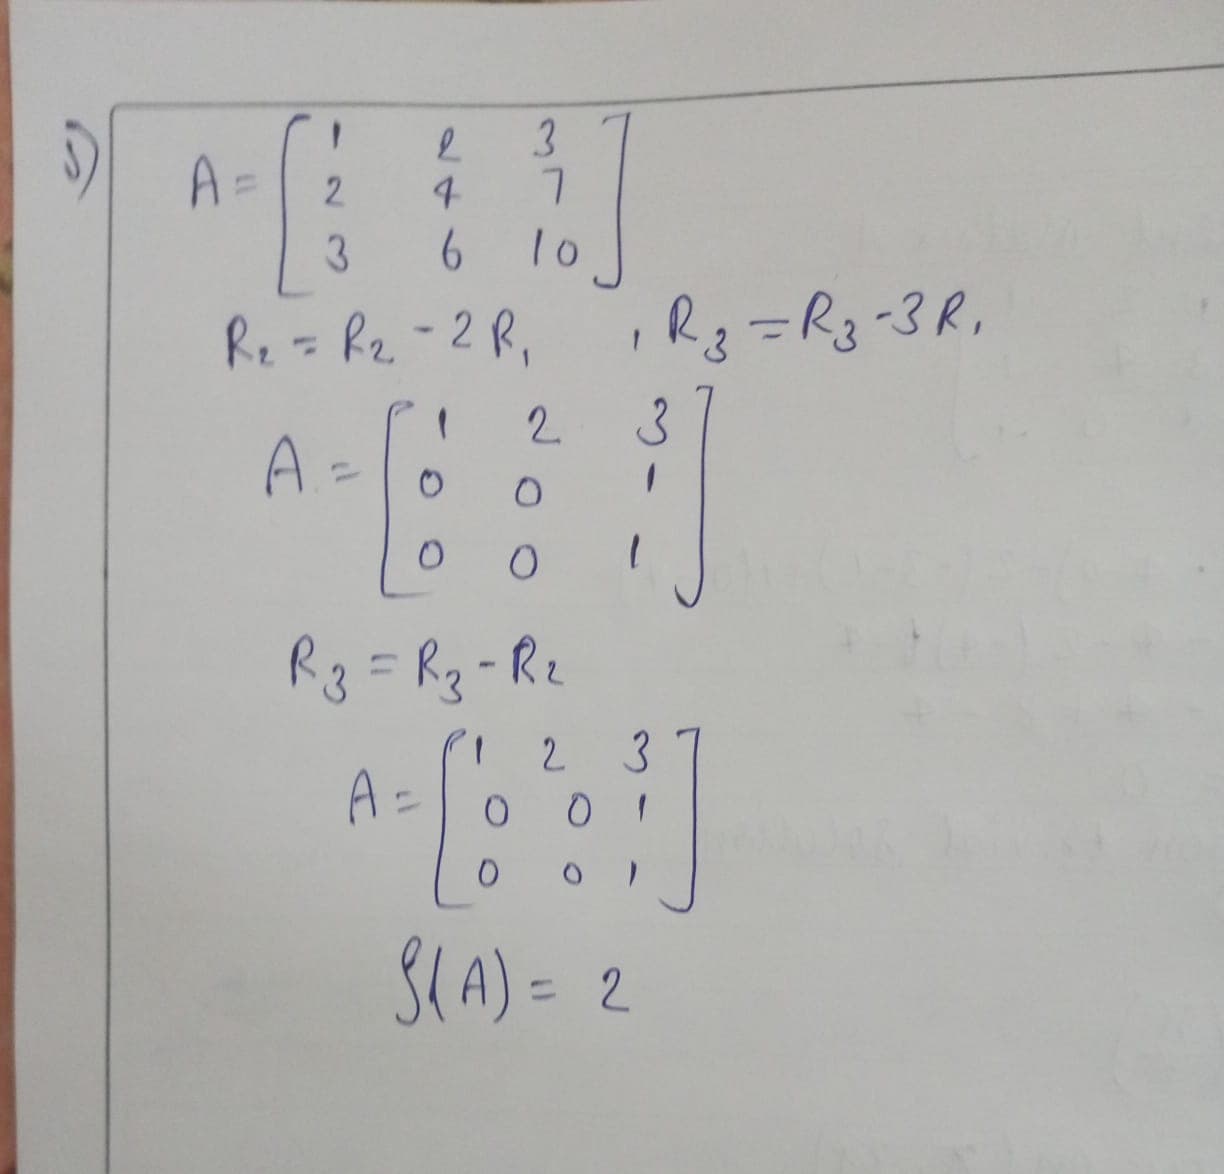 5)
A = [ 1 2 3
2 4 7
3 6 10 ]
R₂ = R₂ - 2R₁ , R₃ = R₃ - 3R₁
A = [ 1 2 3
0 0 1
0 0 1 ]
R₃ = R₃ - R₂
A = [ 1 2 3
0 0 1
0 0 1 ]
ρ(A) = 2